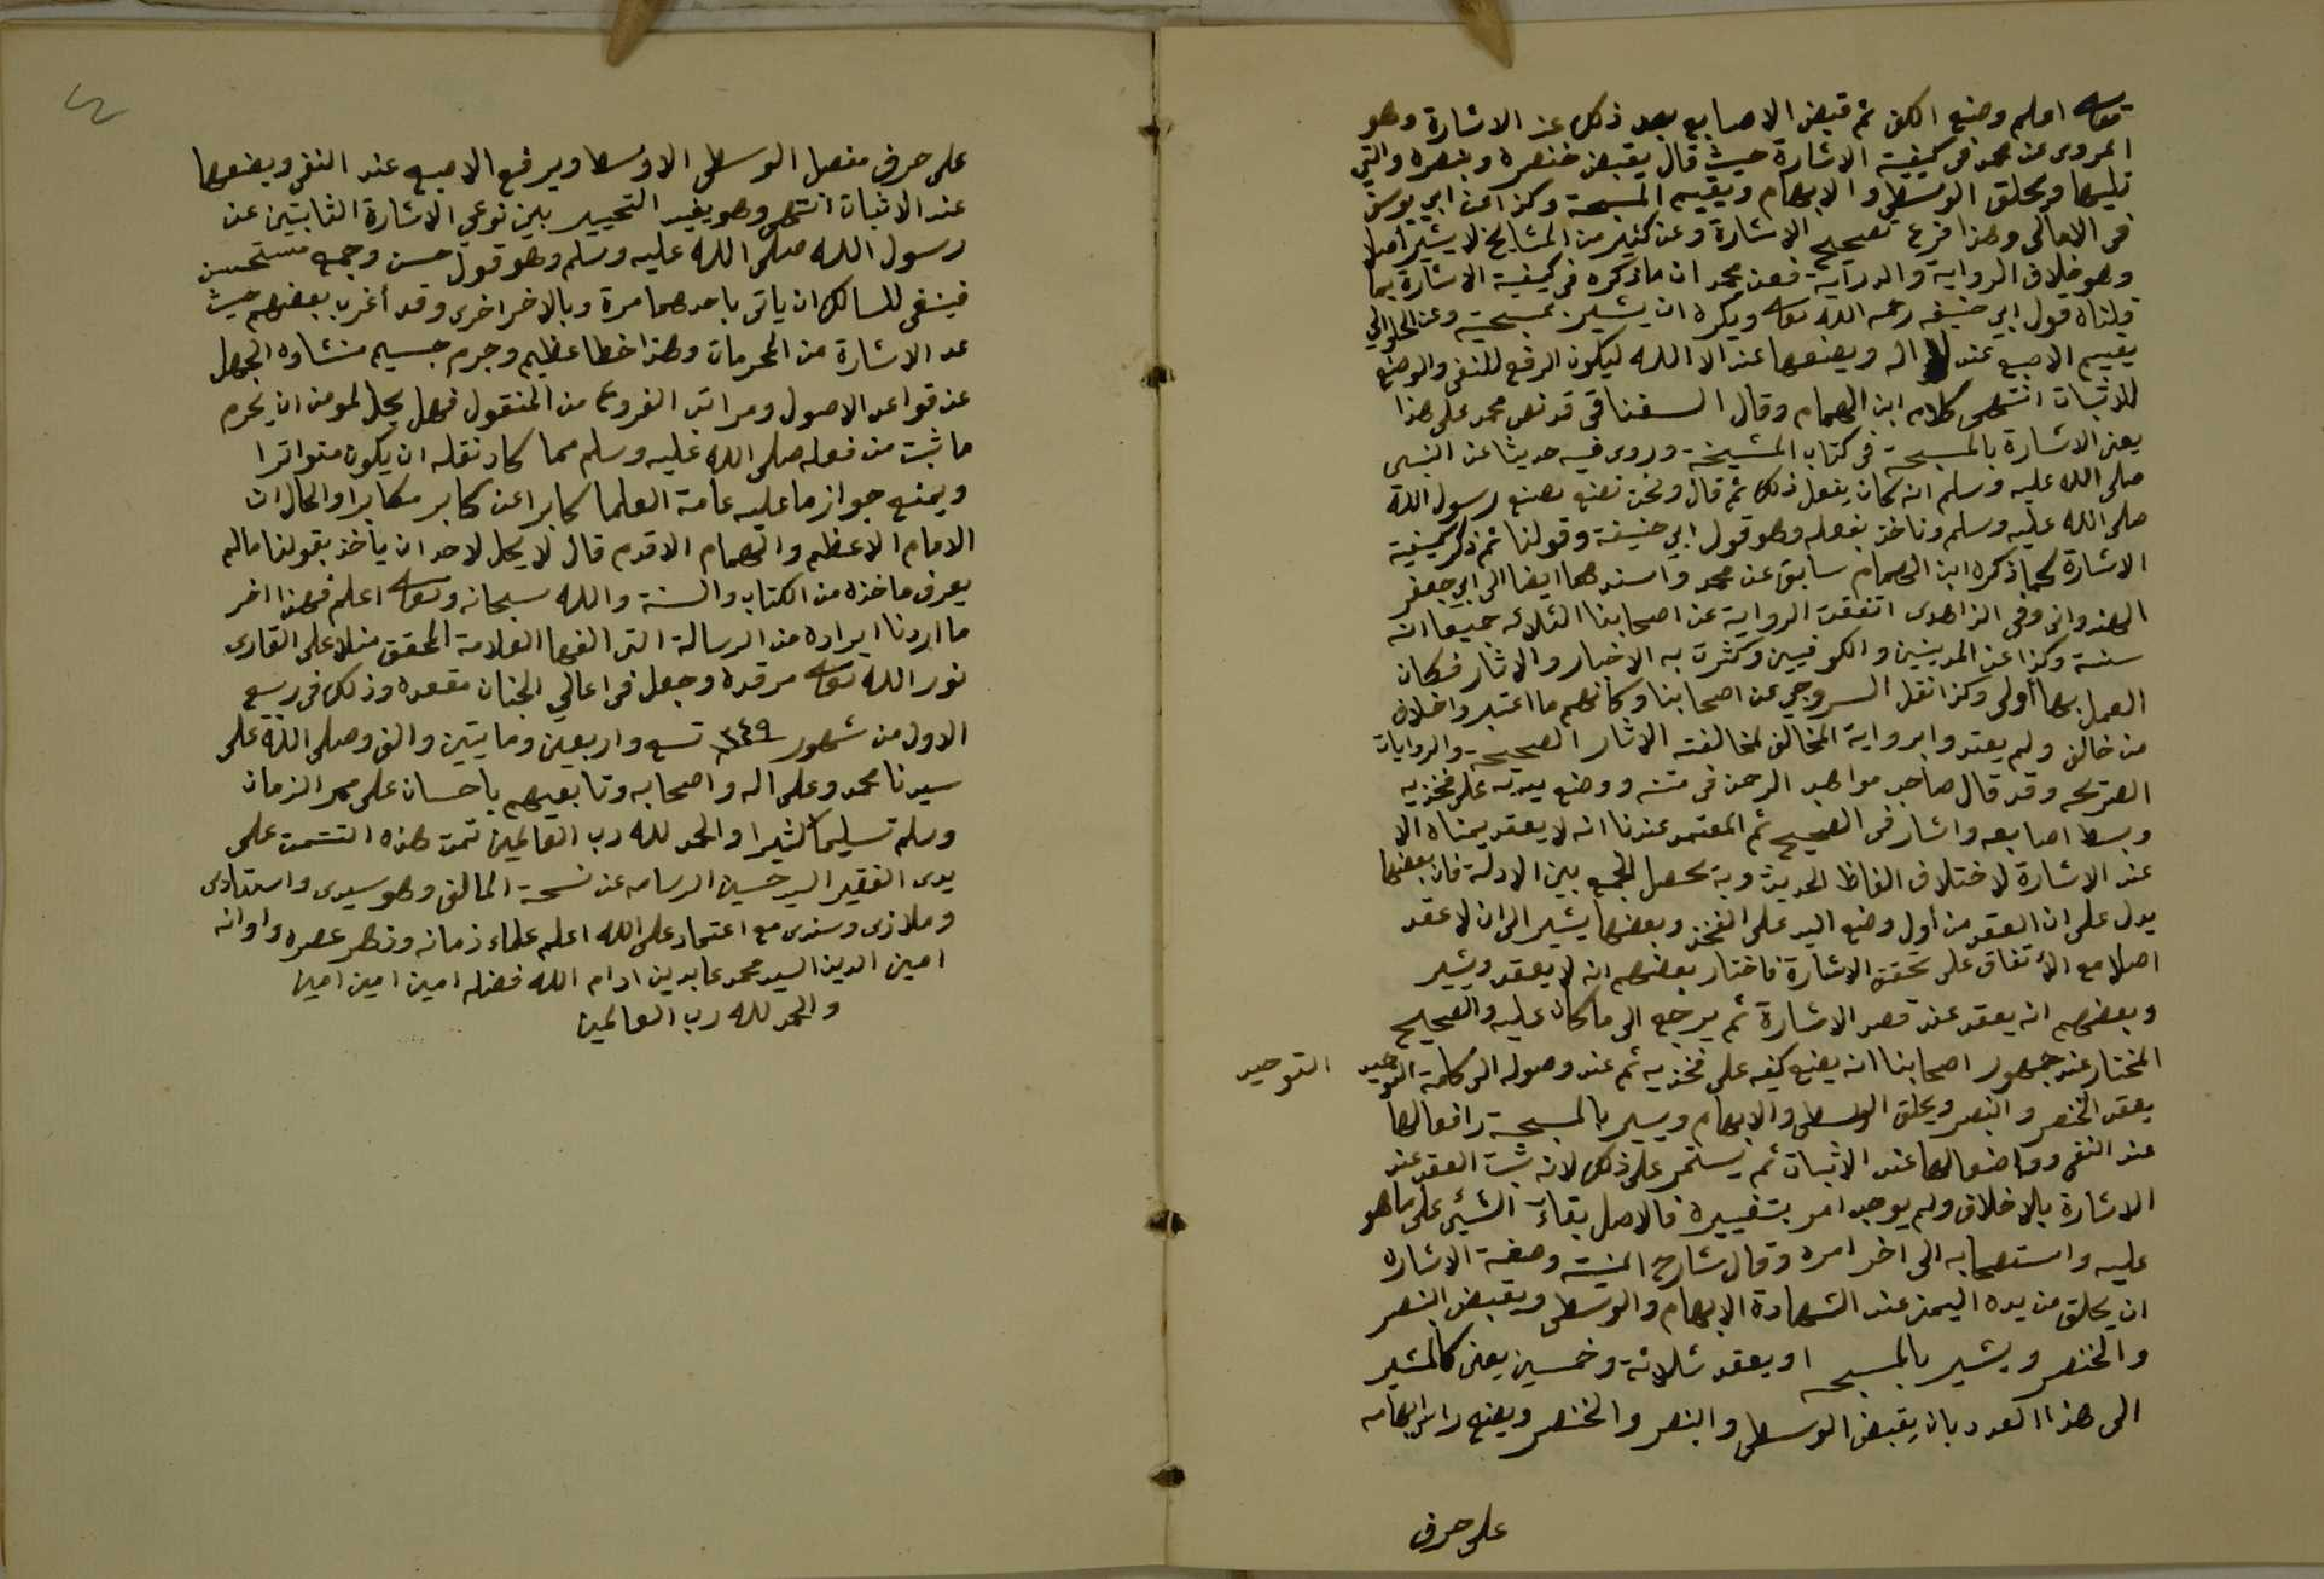 تعالى اعلم وضع الكف ثم قبض الاصابع بعد ذلك عند الاشارة وهو
المروى عن محمد فى كيفية الاشارة حيث قال يقبض خنصره وبنصره والتي
تليها ويحلق الوسطى والابهام ويقيم المسبحة وكذا عن ابي يوسف
فى الامالى وهذا فرع تصحيح الاشارة وعن كثير من المشايخ لا يشير اصلا
وهو خلاف الرواية والدراية فعن محمد ان ماذكره فى كيفية الاشارة بما
قلناه قول ابي حنيفه رحمه الله تعالى ويكره ان يشير بمسبحتيه وعن الحلوانى
يقيم الاصبع عند لا اله ويضعها عند الا الله ليكون الرفع للنفى والوضع
للاثبات انتهى كلام ابن الهمام وقال السغناقى قد نص محمد على هذا
يعنى الاشارة بالمسبحة فى كتاب المشيخة وروى فيه حديثا عن النبى
صلى الله عليه وسلم انه كان يفعل ذلك ثم قال ونحن نصنع بصنع رسول الله
صلى الله عليه وسلم وناخذ بفعله وهو قول ابي حنيفة وقولنا ثم ذكر كيفية
الاشارة كما ذكره ابن الهمام سابق عن محمد واسندهما ايضا الى ابي جعفر
الهندوانى وفى الزاهدى اتفقت الرواية عن اصحابنا الثلاثه جميعا انه
سنة وكذا عن المدنيين والكوفيين وكثرت به الاخبار والاثار فكان
العمل بها أولى وكذا نقل السروجي عن اصحابنا وكانهم ما اعتبروا خلاف
من خالف ولم يعتدوا برواية المخالف لمخالفته الاثار الصحيحة والروايات
الصريحه وقد قال صاحب مواهب الرحمن فى متنه ووضع يديه على فخذيه
وبسط اصابعه واشار فى الصحيح ثم المعتمد عندنا انه لا يعقد يمناه الا
عند الاشارة لاختلاف الفاظ الحديث وبه يحصل الجمع بين الادلة فان بعضها
يدل على ان العقد من أول وضع اليد على الفخذ وبعضها يشير الى ان لا عقد
اصلا مع الأتفاق على تحقق الاشارة فاختار بعضهم انه لا يعقد ويشير
وبعضهم انه يعقد عند قصد الاشارة ثم يرجع الى ما كان عليه والصحيح
المختار عند جمهور اصحابنا انه يضع كفيه على فخذيه ثم عند وصوله الى كلمة التوحيد
التوحيد
يعقد الخنصر والبنصر ويحلق الوسطى والابهام ويشير بالمسبحة رافعا لها
عند النفى وواضعا لها عند الاثبات ثم يستمر على ذلك لانه ثبت العقد عند
الاشارة بالاخلاف ولم يوجد امر بتغييره فالاصل بقاء الشئ على ما هو
عليه واستصحابه الى اخر امره وقال شارح المنية وصفة الاشاره
ان يحلق من يده اليمنى عند الشهادة الابهام والوسطى ويقبض البنصر
والخنصر ويشير بالمسبحه او يعقد ثلاثة وخمسين يعنى كالمشير
الى هذا العدد بان يقبض الوسطى والبنصر والخنصر ويضع راس ابهامه
على حرف
على حرف مفصل الوسطى الاوسط ويرفع الاصبع عند النفى ويضعها
عند الاثبات انتهى وهو يفيد التخيير بين نوعي الاشارة الثابتين عن
رسول الله صلى الله عليه وسلم وهو قول حسن وجمع مستحسن
فينبغى للسالك ان ياتى باحدهما مرة وبالاخر اخرى وقد أغرب بعضهم حيث
عد الاشارة من المحرمات وهذا خطا عظيم وجرم جسيم منشاوه الجهل
عن قواعد الاصول ومراتب الفروع من المنقول فهل يحل لمومن ان يحرم
ما ثبت من فعله صلى الله عليه وسلم مما كاد نقله ان يكون متواترا
ويمنع جواز ما عليه عامة العلما كابرا عن كابر مكابرا والحال ان
الامام الاعظم والهمام الاقدم قال لا يحل لاحد ان ياخذ بقولنا مالم
يعرف ماخذه من الكتاب والسنة والله سبحانه وتعالى اعلم فهذا اخر
ما اردنا ايراده من الرسالة التى الفها العلامة المحقق منلا على القارى
نور الله تعالى مرقده وجعل فى اعالي الجنان مقعده وذلك فى ربيع
الاول من شهور ١٢٤٩ تسع واربعين ومايتين والف وصلى الله على
سيدنا محمد وعلى اله واصحابه وتابعيهم باحسان على ممر الزمان
وسلم تسليما كثيرا والحمد لله رب العالمين تمت هذه التتمة على
يدى الفقير السيد حسين الرسامه عن نسخة المالف وهو سيدى واستاذى
وملاذى وسندى مع اعتماد على الله اعلم علماء زمانه ونظر عصره واوانه
امين الدين السيد محمد عابدين ادام الله فضله امين امين امين
والحمد لله رب العالمين